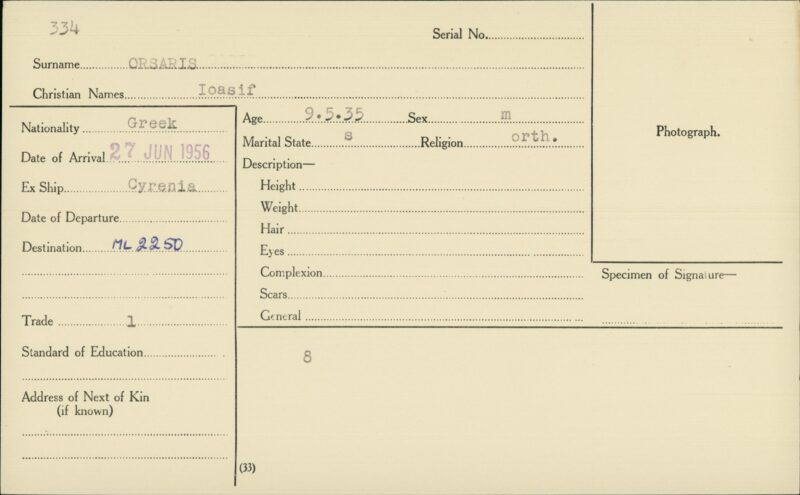 334
Serial No.
Surname ORSARIS
Christian Names Ioasif
Nationality Greek
Date of Arrival 27 JUN 1956
Ex Ship Cyrenia
Date of Departure
Destination ML 2250
Trade 1
Standard of Education
Address of Next of Kin
(if known)
Age 9.5.35 Sex m
Marital State s Religion orth.
Description—
Height
Weight
Hair
Eyes
Complexion
Scars
General
8
(33)
Photograph.
Specimen of Signature—